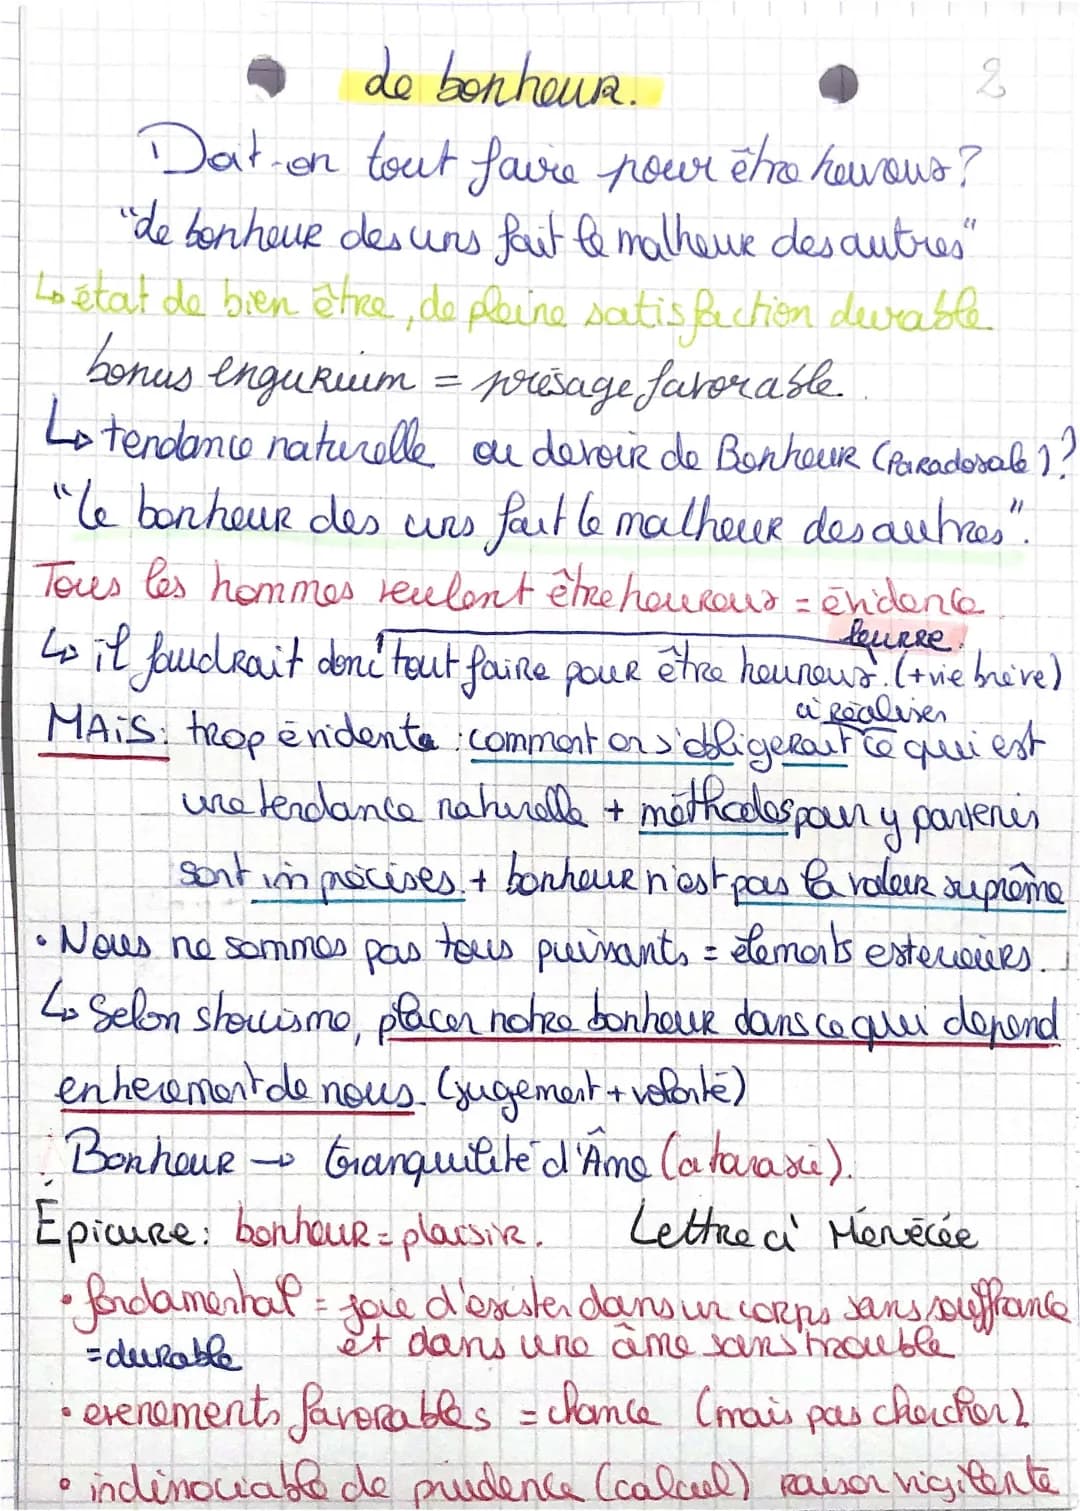 de bonheur.
2
Doit-on tout faire pour être heureux?
"de bonheur des uns fait le malheur des autres"
↳ état de bien être, de pleine satisfaction durable
bonus engurium = présage favorable.
↳ tendance naturelle ou devoir de Bonheur (Paradoxale)?
"le bonheur des uns fait le malheur des autres".
Tous les hommes veulent être heureux = évidence.
leurre.
↳ il faudrait donc tout faire pour être heureux. (+vie brève)
à réaliser
MAIS: trop évidente : comment on s'obligerait ce qui est
une tendance naturelle + méthodes pour y parvenir
sont imprécises. + bonheur n'est pas la valeur suprême
• Nous ne sommes pas tous puissants = élements exterieurs.
↳ Selon stoïcisme, placer notre bonheur dans ce qui depend
entierement de nous. (jugement + volonté)
Bonheur → tranquilité d'Âme (ataraxie).
Épicure: bonheur = plaisir. Lettre à Ménécée
• fondamental = joie d'exister dans un corps sans souffrance
= durable et dans une âme sans trouble
• evenements favorables = chance (mais pas chercher)
• indinociable de prudence (calcul) raison vigilante